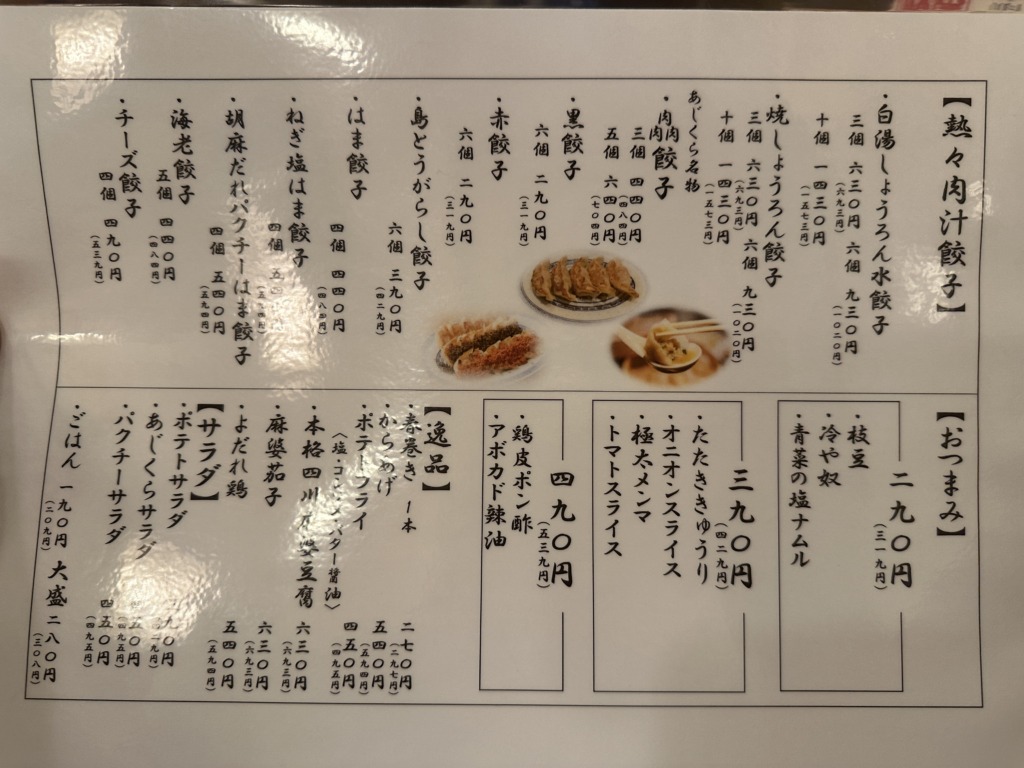 【熱々肉汁餃子】
・白湯しょうろん水餃子
三個 六三〇円 六個 九三〇円
(六九三円) (一〇二〇円)
十個 一四三〇円
(一五七三円)
・焼しょうろん餃子
三個 六三〇円 六個 九三〇円
(六九三円) (一〇二〇円)
十個 一四三〇円
(一五七三円)
あじくら名物
・肉肉肉餃子
三個 四四〇円
(四八四円)
五個 六四〇円
(七〇四円)
・黒餃子
六個 二九〇円
(三一九円)
・赤餃子
六個 二九〇円
(三一九円)
・島とうがらし餃子
六個 三九〇円
(四二九円)
・はま餃子
四個 四四〇円
(四八四円)
・ねぎ塩はま餃子
四個 五四〇円
・胡麻だれパクチーはま餃子
四個 五四〇円
(五九四円)
・海老餃子
五個 四四〇円
(四八四円)
・チーズ餃子
四個 四九〇円
(五三九円)
【おつまみ】
二九〇円
(三一九円)
・枝豆
・冷や奴
・青菜の塩ナムル
三九〇円
(四二九円)
・たたききゅうり
・オニオンスライス
・極太メンマ
・トマトスライス
四九〇円
(五三九円)
・鶏皮ポン酢
・アボカド辣油
【逸品】
・春巻き 一本 二七〇円
(二九七円)
・からあげ 五四〇円
(五九四円)
・ポテトフライ 四五〇円
(四九五円)
・本格四川麻婆豆腐 六三〇円
(六九三円)
・麻婆茄子 六三〇円
(六九三円)
・よだれ鶏 五四〇円
(五九四円)
【サラダ】
・ポテトサラダ
・あじくらサラダ
・パクチーサラダ 四五〇円
(四九五円)
・ごはん 一九〇円 大盛 二八〇円
(二〇九円) (三〇八円)